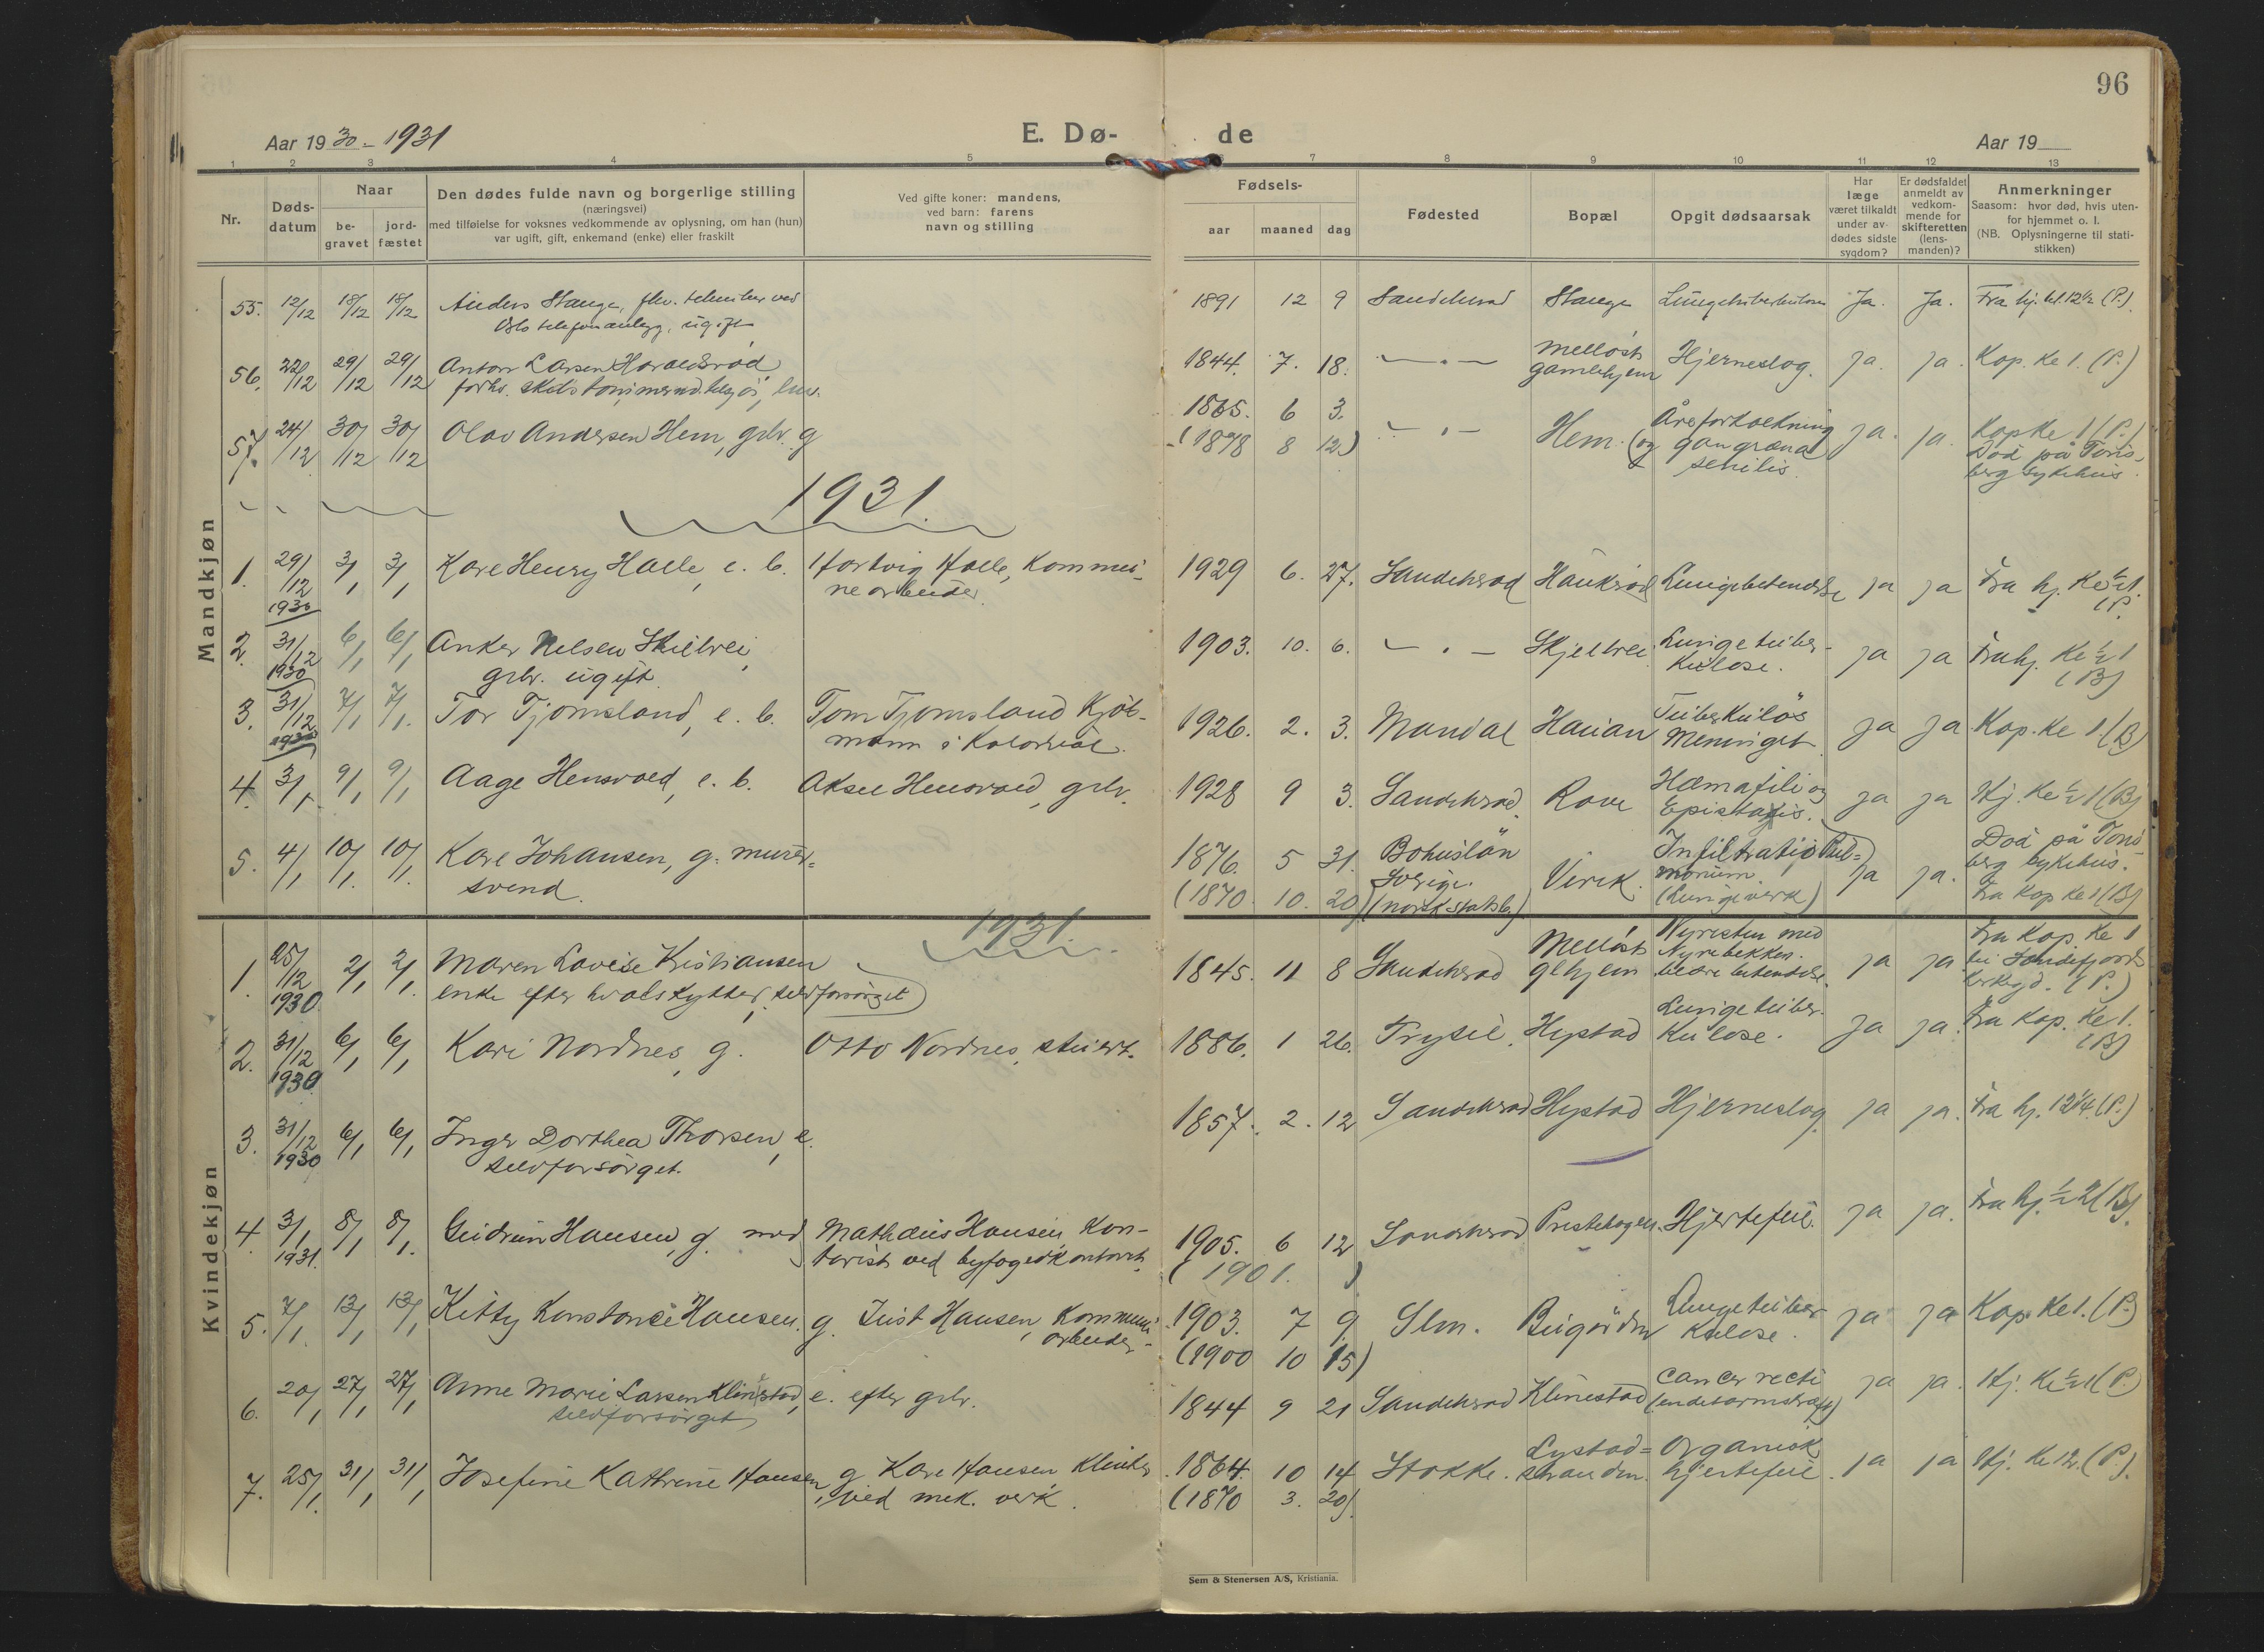 96
Aar 1930 - 1931
E. Dø-
de
Aar 19
1 2 3 4 5 6 7 8 9 10 11 12 13
Nr.
Døds-
datum
Naar
be-
gravet
jord-
fæstet
Den dødes fulde navn og borgerlige stilling
(næringsvei)
med tilføielse for voksnes vedkommende av oplysning, om han (hun)
var ugift, gift, enkemand (enke) eller fraskilt
Ved gifte koner: mandens,
ved barn: farens
navn og stilling
Fødsels-
aar
maaned
dag
Fødested
Bopæl
Opgit dødsaarsak
Har
læge
været tilkaldt
under av-
dødes sidste
sygdom?
Er dødsfaldet
anmeldt av
vedkom-
mende for
skifteretten
(lens-
manden)?
Anmerkninger
Saasom: hvor død, hvis uten-
for hjemmet o. l.
(NB. Oplysningerne til stati-
stikken)
Mandkjøn
55. 12/12 18/12 18/12 Anders Stange, ved
Oslo telefonanlegg, ugift
1891 12 9 Sandeherad Stange Lungetuberkulose Ja. Ja. Fra hj. kl 12½ (P.)
56. 22/12 29/12 29/12 Anton Larsen Haraldsrød
forhv.
1844. 7. 18. — " — Melløst
gamlehjem Hjerneslag. ja. ja. Kap. Ke 1. (P.)
57. 24/12 30/12 30/12 Olav Andersen Hem, grbr. g
1865. 6 3.
(1898 8 12) — " — Hem. Åreforkalkning
(og gangræna
senilis. ja. ja. Kap Ke 1 (P.)
Död på Töns-
berg sykehus.
1931.
1. 29/12 1930 3/1 3/1 Kare Henry Halle, e. b. Hartvig Halle, Kommu-
nearbeider.
1929 6. 27. Sandeherad Haukrød Lungebetendelse ja ja Fra hj. Ke ½ 1.
(P.
2. 31/12 1930 6/1 6/1 Anker Nelsen Skilvei,
grbr. ugift.
1903. 10. 6. — " — Skjelvei Lungetuber-
kulose. ja ja Fra hj. Ke ½ 1
(B)
3. 31/12 1930 7/1 7/1 Tor Tjomsland, e. b. Tom Tjomsland Kjöb-
mann i
1926. 2. 3. Mandal Hauan Tuberkulös
Meninget. ja ja Kap. Ke 1 (B)
4. 3/1 9/1 9/1 Aage Hensvold, e. b. Aksel Hensvold, grbr.
1928 9 3. Sandeherad. Rove Hæmafili og
Epistaxis. ja ja Hj. Ke ½ 1 (B)
5. 4/1 10/1 10/1 Kare Johansen, g. murer-
svend.
1876. 5 31.
(1870. 10. 20) Bohuslän
Sverige.
(norsk statsb.) Virik. Infiltratio Pul-
monum
(Lungevirk) ja ja. Död på Töns-
berg sykehus.
Fra Kap Ke 1 (B)
Kvindekjøn
1931.
1. 25/12 1930 2/1 2/1 Maren Lovise Kristiansen
enke efter hvalskytter, selvforsørget)
1845. 11 8 Sandeherad Melløst
glhjem Nyresten med
Nyrebekken-
blærebetendelse. ja ja Fra Kap Ke 1
til Sandefjords
kirkegd. (P.)
2. 31/12 1930 6/1 6/1 Kari Nordnes, g. Otto Nordnes, stuert.
1886. 1 26. Trysil. Hystad Lungetuber-
kulose. ja ja. Fra Kap. Ke 1.
(B)
3. 31/12 1930 6/1 6/1 Inger Dorthea Thorsen, e.
selvforsørget.
1857. 2. 12 Sandeherad Hystad Hjerneslag ja ja. Fra hj. 12¼. (P.)
4. 3/1 1931. 8/1 8/1 Gudrun Hansen, g. med Mathæus Hansen, Kon-
torist ved byfogedkontoret.
1905. 6 12
(1901. ) Sandeherad Prestehagen. Hjertefeil. ja ja. Fra hj. ½ 2 (B).
5. 7/1 13/1 13/1 Kitty Konstance Hansen. g. Just Hansen, Kommune-
arbeider
1903. 7 9
(1900 10 15) Slm. Bugården Lungetuber-
kulose. ja ja Kap. Ke 1. (P.)
6. 20/1 27/1 27/1 Anne Marie Larsen Klinestad, e. efter grbr.
selvforsørget
1844 9 21 Sandeherad Klinestad cancer recti
(endetarmskræft) ja ja. Hj. Ke ½ 1 (P.)
7. 25/1 31/1 31/1 Josefine Kathrine Hansen, g. Kare Hansen Klinker
ved mek. verk.
1864. 10 14
(1870 3. 20). Stokke. Lystad-
stranden. Organisk
hjertefeil. ja ja Hj. Ke 12. (P.).
Sem & Stenersen A/S, Kristiania.